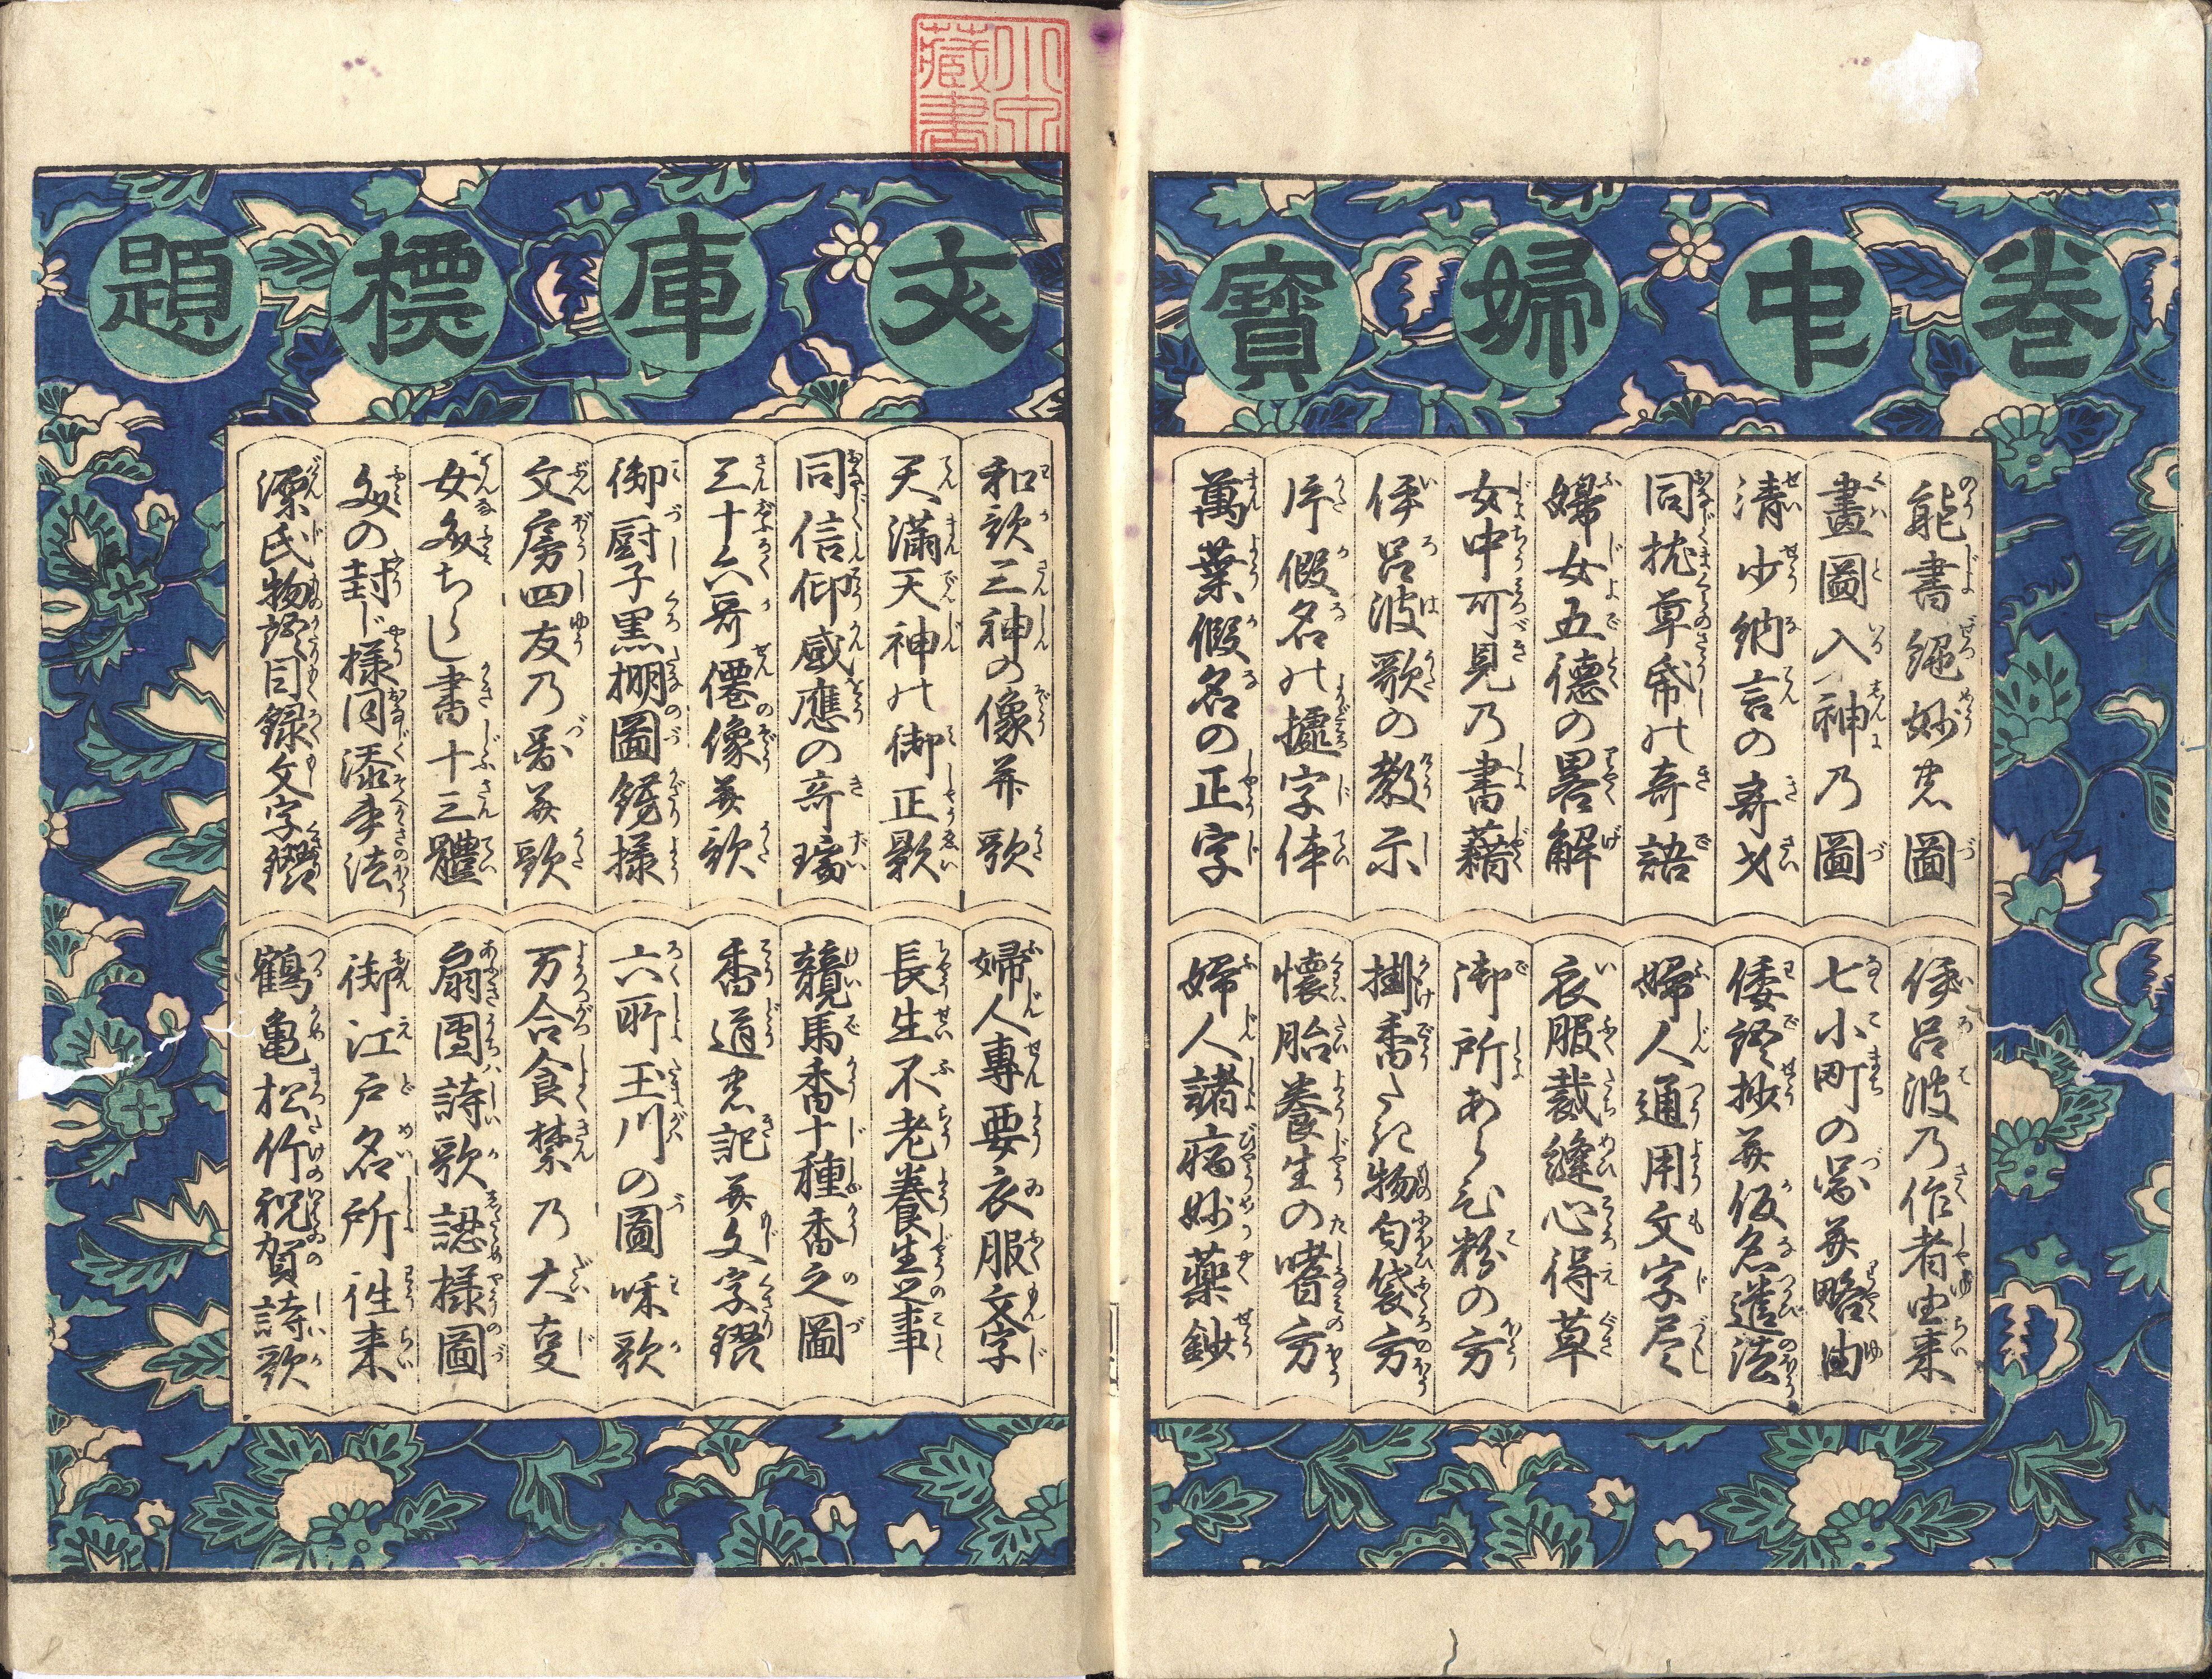 巻中婦寶
文庫標題
能書絶妙之圖
畫圖入神乃圖
清少納言の奇才
同枕草帋の奇語
婦女五徳の畧解
女中可見乃書藉
伊呂波歌の教示
片假名の據字体
萬葉假名の正字
伊呂波乃作者由来
七小町の圖并略由
倭語抄并仮名遣法
婦人通用文字尽
衣服裁縫心得草
御所あらひ粉の方
掛香たき物匂袋方
懐胎養生の嗜方
婦人諸病妙薬鈔
和歌三神の像并歌
天満天神の御正影
同信仰感應の奇瑞
三十六哥僊像并歌
御厨子黒棚圖餝様
文房四友乃圖并歌
女文ちらし書十三體
文の封じ様同添手法
源氏物語目録文字鏁
婦人專要衣服文字
長生不老養生之事
競馬香十種香之圖
香道之記并文字鏁
六所玉川の圖咊歌
万合食禁乃大叓
扇團詩歌認様圖
御江戸名所徃来
鶴亀松竹祝賀詩歌